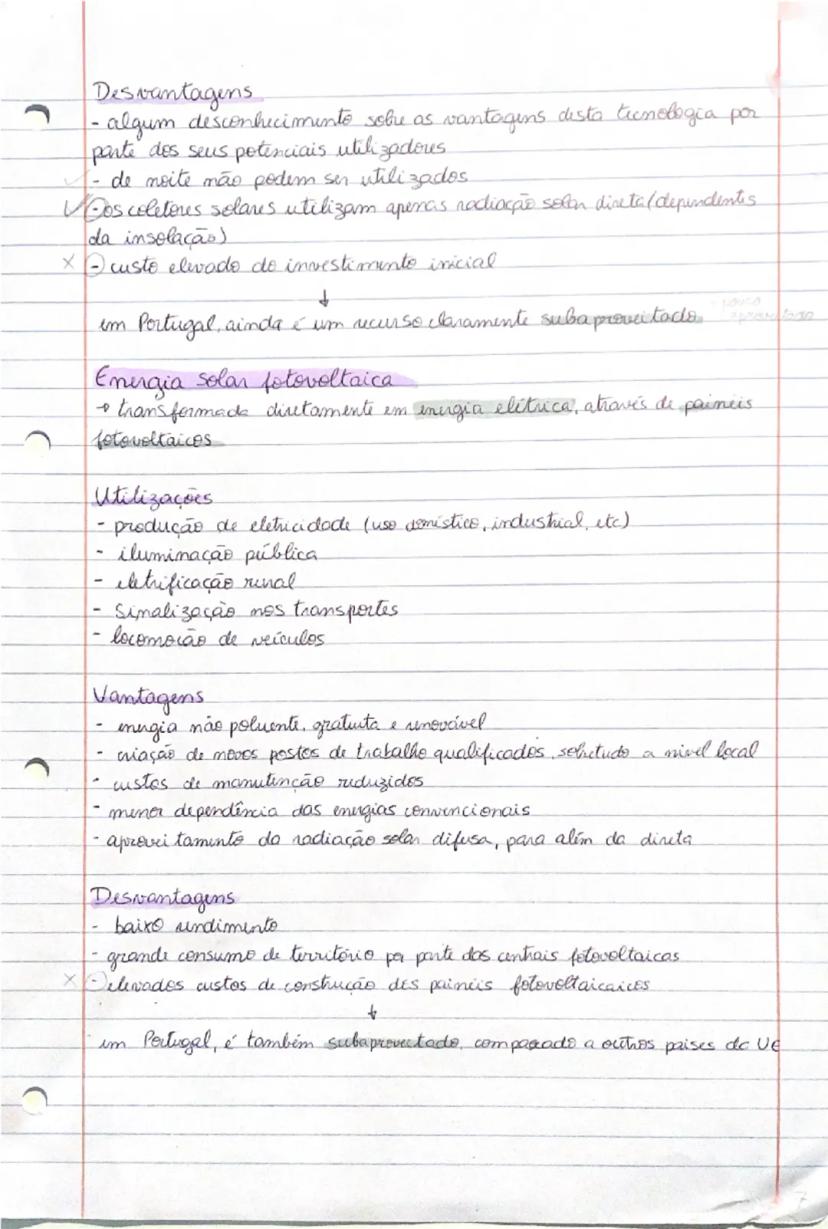 Desvantagens
- algum desconhecimento sobre as vantagens desta tecnologia por
parte dos seus potenciais utilizadores
✓ - de noite não podem ser utilizados
✓ - os coletores solares utilizam apenas radiação solar direta (dependentes
da insolação)
× - custo elevado do investimento inicial
↓
em Portugal, ainda é um recurso claramente subaproveitado
- pouco
aproveitado
Energia solar fotovoltaica
→ transformada diretamente em energia elétrica, através de painéis
fotovoltaicos
Utilizações
- produção de eletricidade (uso doméstico, industrial, etc)
- iluminação pública
- eletrificação rural
- Sinalização nos transportes
- locomoção de veículos
Vantagens
- energia não poluente, gratuita e renovável
- criação de novos postos de trabalho qualificados, sobretudo a nível local
- custos de manutenção reduzidos
- menor dependência das energias convencionais
- aproveitamento da radiação solar difusa, para além da direta
Desvantagens
- baixo rendimento
- grande consumo de território por parte das centrais fotovoltaicas
× - elevados custos de construção dos painéis fotovoltaicaicos
↓
em Portugal, é também subaproveitado, comparado a outros países da UE
7